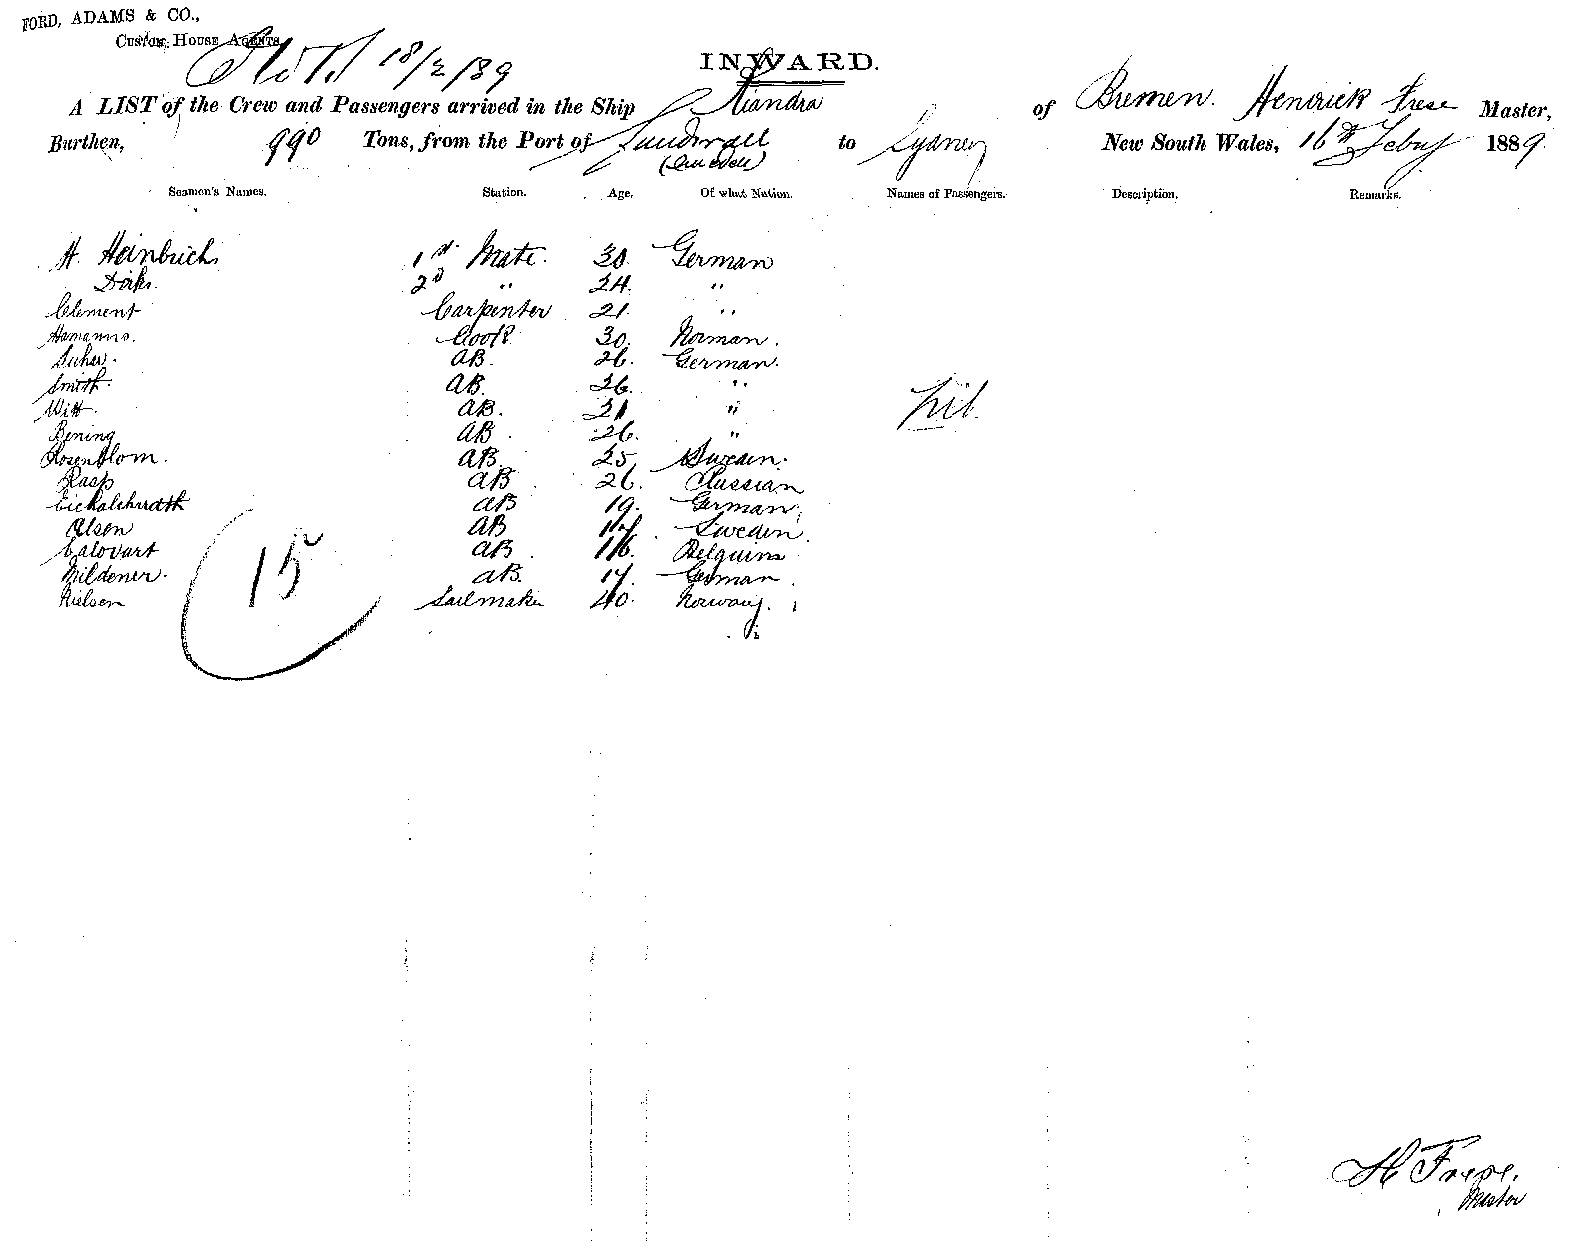 FORD, ADAMS & CO.,
CUSTOM HOUSE AGENTS
18/2/89
INWARD.
A LIST of the Crew and Passengers arrived in the Ship Kiandra of Bremen. Hendrick Frese Master,
Burthen, 990 Tons, from the Port of Sundsvall to Sydney New South Wales, 16th Feby 1889.
(Sweden)
Seamen's Names. Station. Age. Of what Nation. Names of Passengers. Description. Remarks.
H. Heinbrich 1st Mate. 30. German
Dirks. 2d " 24. "
Clement Carpenter 21. "
Hamanns. Cook 30. Norman.
AB. 26. German.
Smith. AB. 26. "
Witt. AB. 21 " Nil.
Bening AB. 26. "
Rosenblom. AB. 25, Sweden.
Rasp AB. 26. Russian
AB 19. German,
Olsen AB 17. Sweden.
Calovart AB. 16. Belguim
Mildener. AB. 17. German.
Nielsen Sailmaker 40. Norway.
15
H Frese.
Master